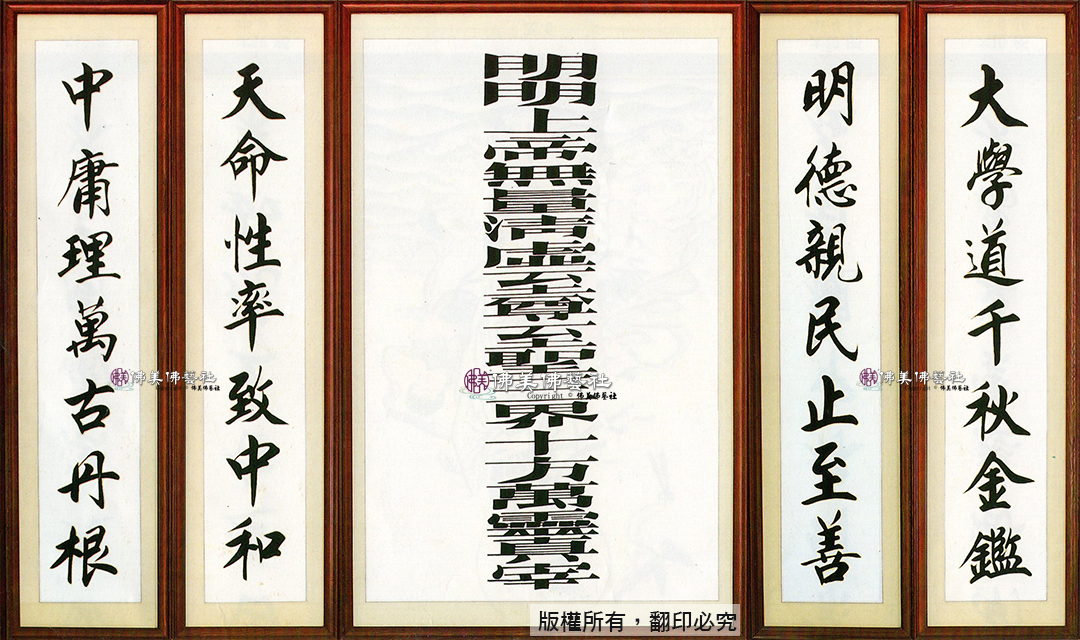 大學道千秋金鑑
明德親民止至善
明明上帝無量清虛至尊至聖三界十方萬靈真宰
天命性率致中和
中庸理萬古丹根
佛美佛藝社
Copyright © 佛美佛藝社
佛美佛藝社
Copyright © 佛美佛藝社
佛美佛藝社
Copyright © 佛美佛藝社
版權所有，翻印必究